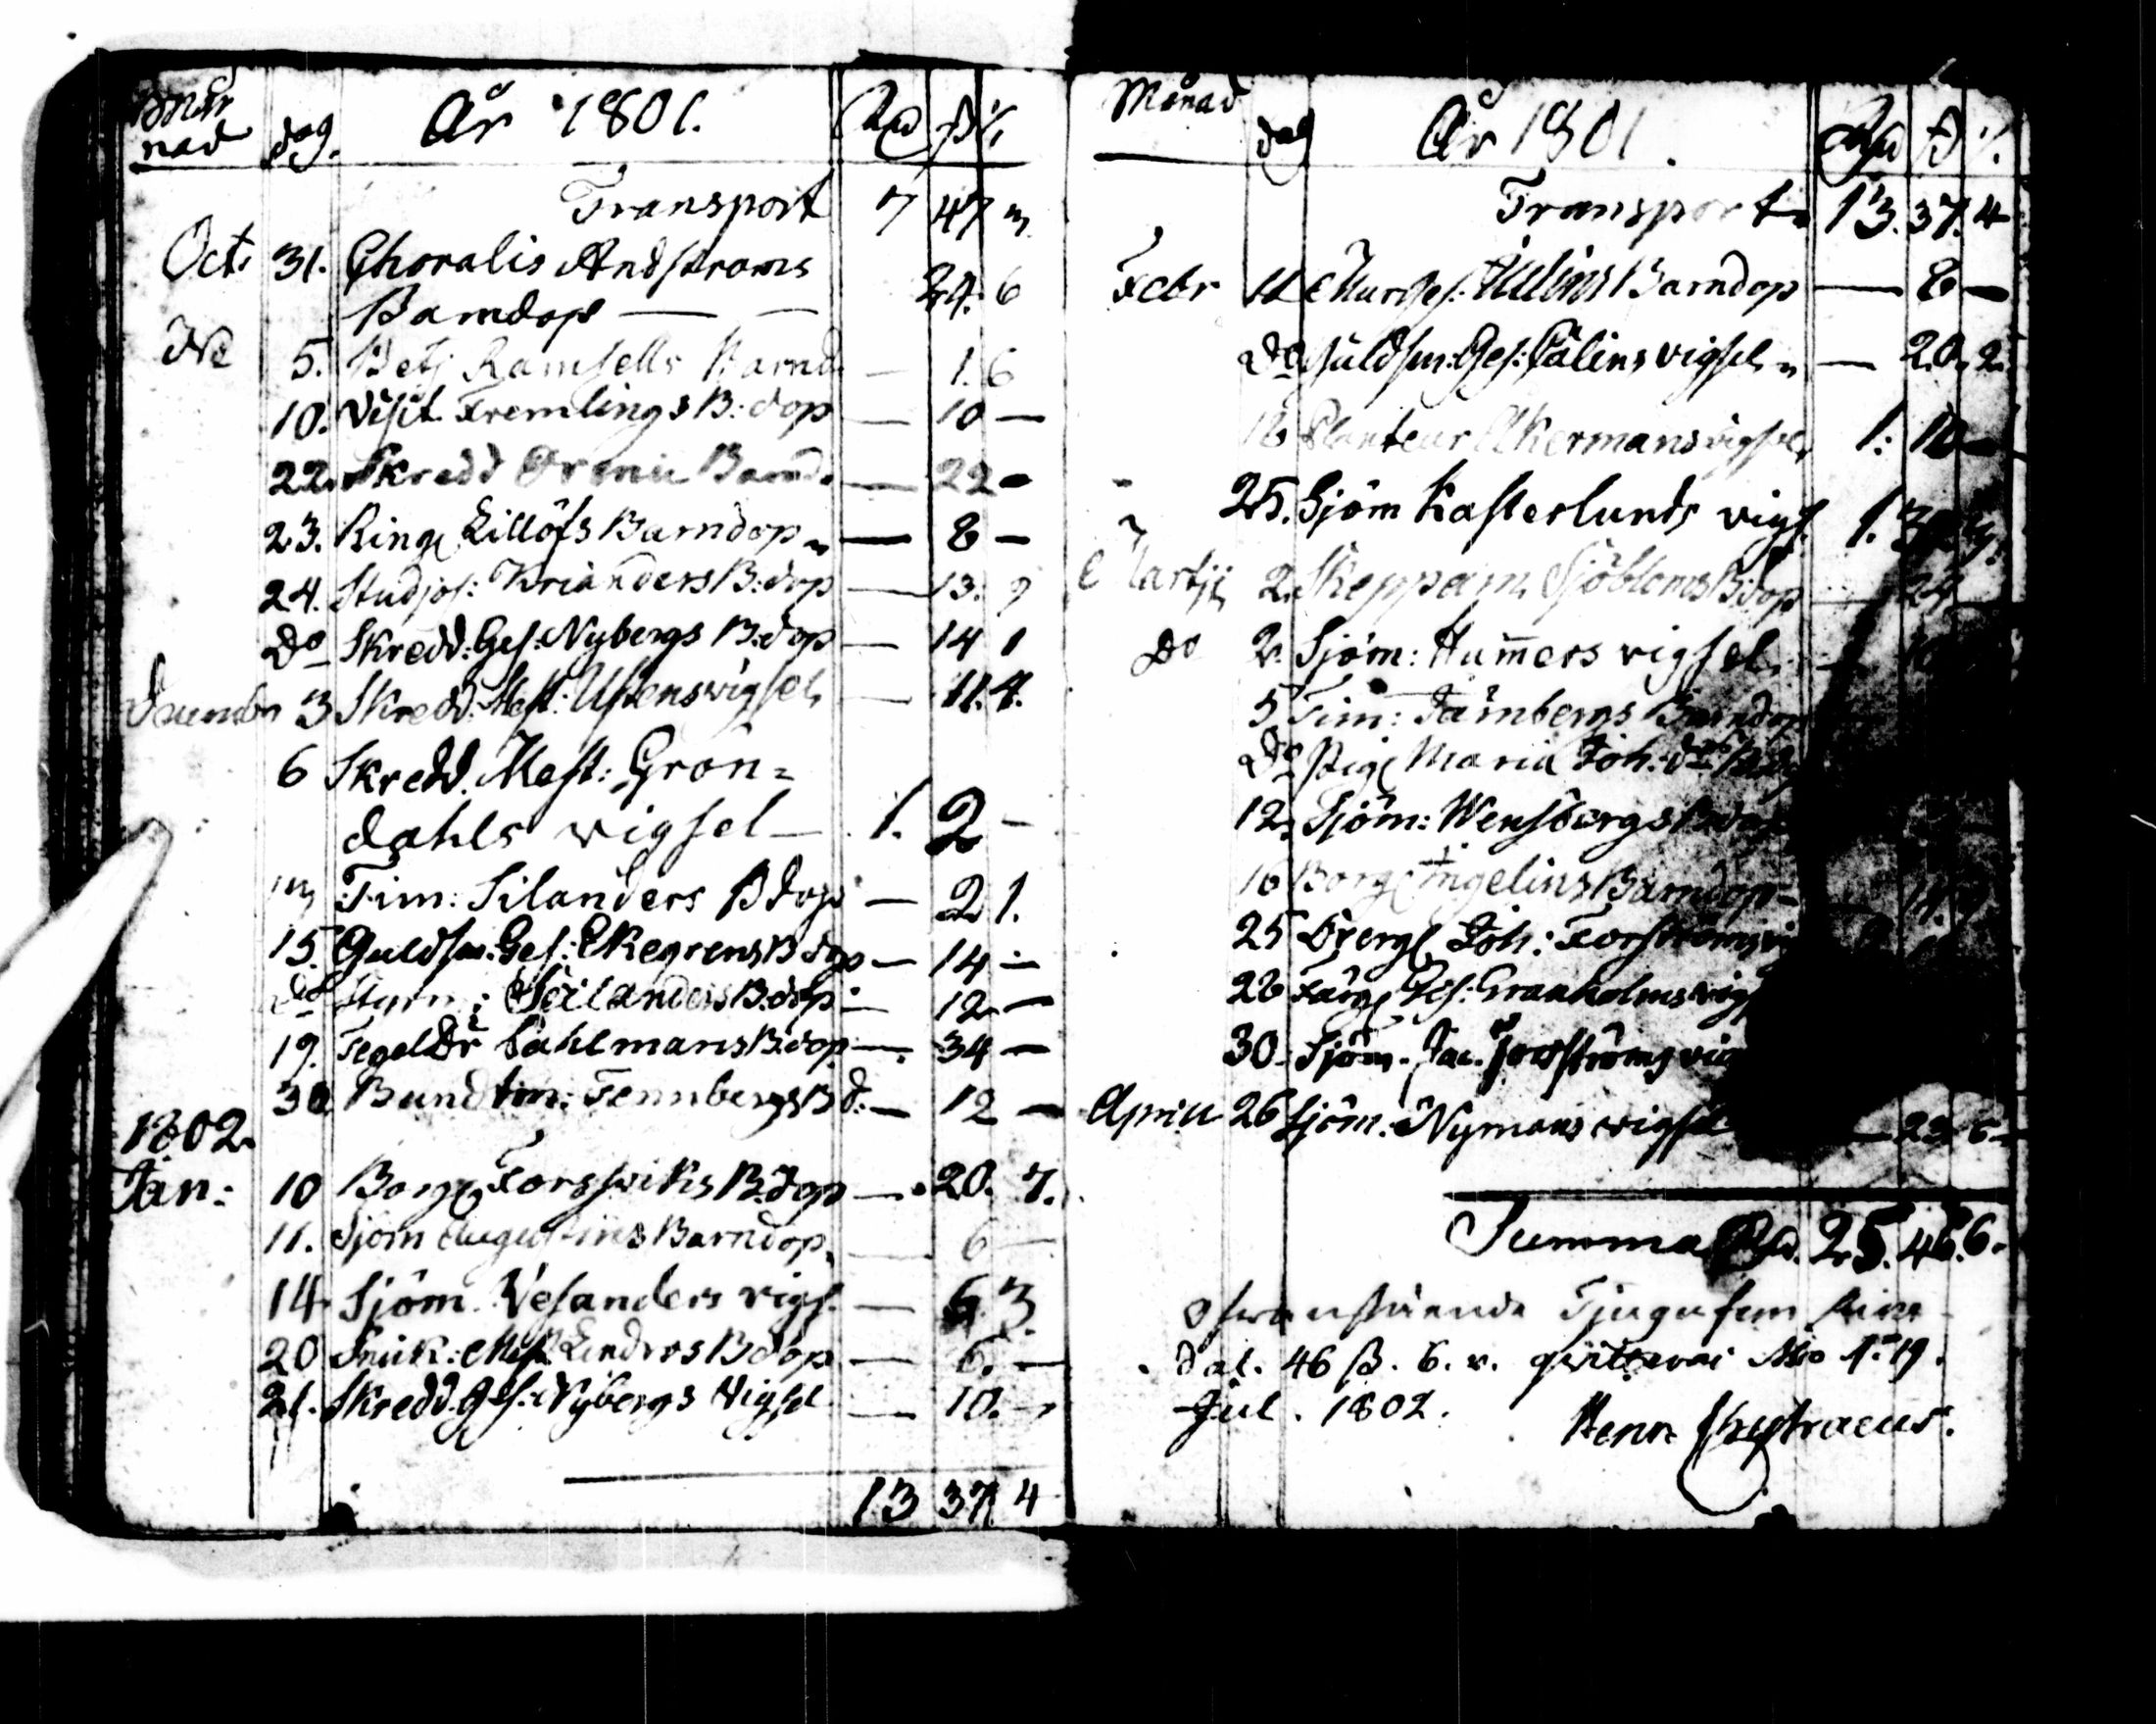 Må
nad dag. År 1801. Rd ß r
Transport 7 47 3
Oct: 31. Choralis Andströms
Barndop — — 24. 6
5. Betj Ramsells Barnd. — 1. 6
10. Visit. Fremlings B: dop — 10 —
22. Skredd Barnd. — 22 —
23. Ring Lillöfs Barndop — 8 —
24. Studjos: Krianders B: dop — 13. 9
Do Skredd: Ges: Nybergs B: dop — 14 1
3 Skredd: Mest: vigsel — 11. 4.
6 Skredd. Mest: Grön=
dahls vigsel — 1. 2 —
13 Tim: Silanders B dop — 21.
15. Guldsm. Ges: Ekegrens B dop — 14 —
Do B: dop — 12 —
19. Sahlmans B: dop — 34 —
30 Tennbergs B d. — 12 —
1802.
Jan: 10 Borg Forsswiks B. dop — 20. 7.
11. Sjöm Augustins Barndop — 6 —
14. Sjöm. Vesanders vigs. — 6. 3.
20 Snik: Mest. B dop — 6. —
21. Skredd. Ges: Nybergs Vigsel — 10. —
13 37 4
Månad
dag År 1801. Rd ß r.
Transport 13. 37. 4
Febr 11 Barndop — 8 —
Do Guldsm: Ges: Pálins vigsel — 20. 2.
18 Planteur Åkermans vigsel 1: 10 —
25. Sjöm Kasterlunds vigs. 1.
Martji 2. Skeppsm Sjöbloms B: dop 24
Do 2. Sjöm: Hum̄ers vigsel
5 Tim: Järnbergs Barndop
Do Pig Maria Joh: d:r
12. Sjöm: Wensbergs
16 Borg Ingelins Barndop
25 Joh: Forströms
28 Färg Ges: Granholms vigs
30 Sjöm. Jac. Forströms vig
Aprill 26 Sjöm: Nymans vigsel — 23 6 —
Summa Rd. 25. 46. 6.
Ofwanstående Tjugufem Riks
dal. 46 ß. 6. r. qvitteras Åbo d: 19.
Jul. 1802.
Henr Chytraeus.